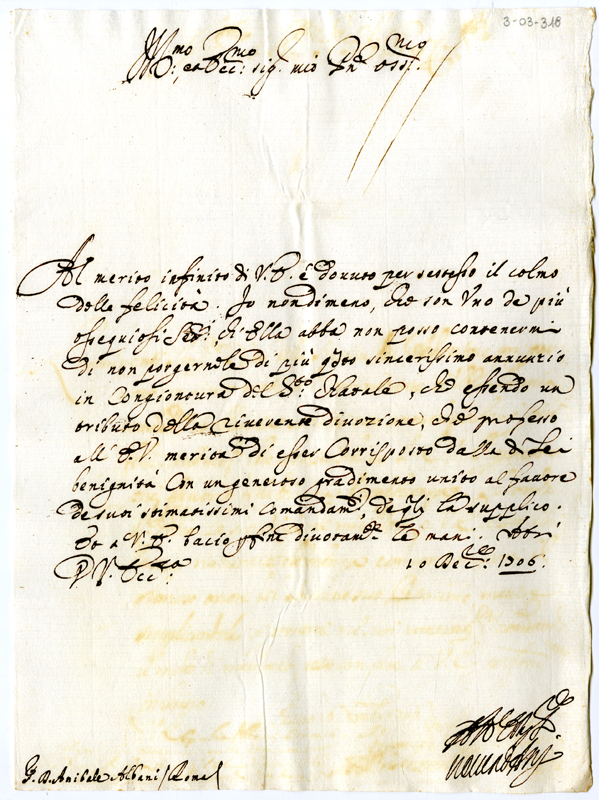 3-03-318
Ill.mo et Ecc.mo Sig.r mio P.ne Oss.mo
Al merito infinito di V.E. è douuto per se stesso il colmo
delle felicità. Io nondimeno, che son Vno de più
ossequiosi Ser.i ch'Ella abba non posso contenermi
di non porgernele di più q.sto sincerissimo annunzio
in Congiontura del S.to Natale, che essendo un
tributo della riuerente diuozione, che professo
all' E.V. merita di esser Corrisposto dalla di Lei
benignità Con un generoso gradimento unito al fauore
de suoi stimatissimi comandam.ti, de q.li la supplico.
Et a V.E. bacio diuotam.te le mani.
D V. Ecc.za 10 Dec.re 1706.
S. D. Anibale Albani / Roma /